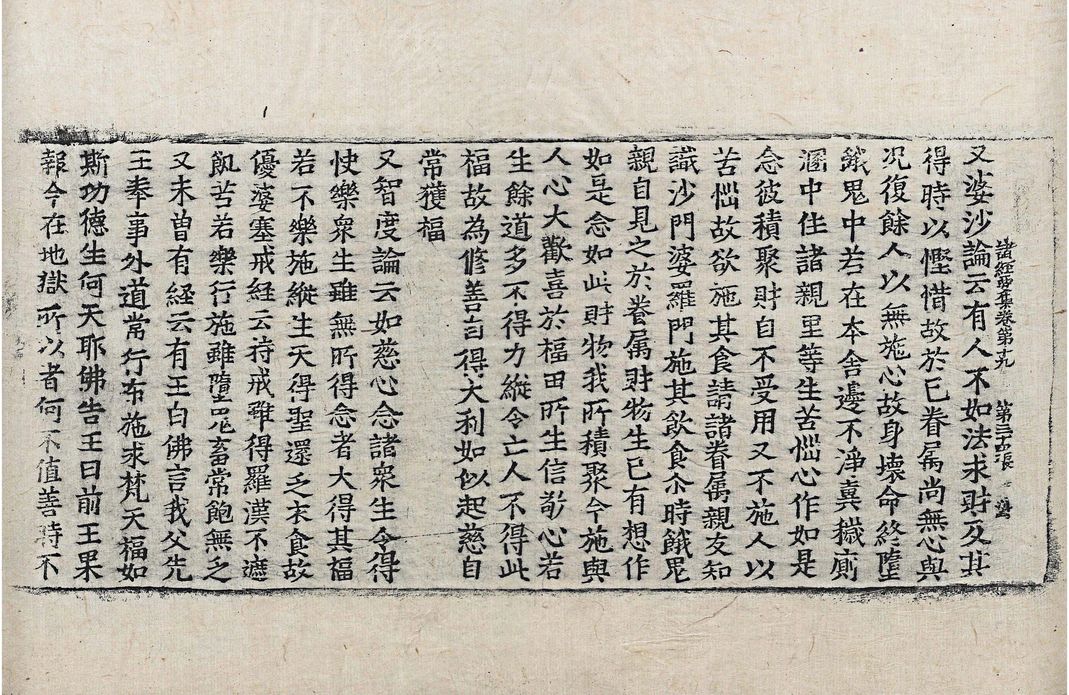 諸經要集卷第十九 第三十五張
又婆沙論云有人不如法求財及其
得時以慳惜故於己眷属尚無心與
况復餘人以無施心故身壊命終墮
餓鬼中若在本舍邊不淨糞穢廁
溷中住諸親里等生苦惱心作如是
念彼積聚財自不受用又不施人以
苦惱故欲施其食請諸眷属親友知
識沙門婆羅門施其飲食尒時餓鬼
親自見之於眷属財物生己有想作
如是念如此財物我所積聚今施與
人心大歡喜於福田所生信敬心若
生餘道多不得力縱令亡人不得此
福故為修善言得大利如似起慈自
常獲福
又智度論云如慈心念諸衆生令得
快樂衆生雖無所得念者大得其福
若不樂施縱生天得聖還乏衣食故
優婆塞戒経云持戒雖得羅漢不遮
飢苦若樂行施雖墮鬼畜常飽無乏
又未曽有経云有王白佛言我父先
王奉事外道常行布施求梵天福如
斯功德生何天耶佛告王曰前王果
報今在地獄所以者何不值善時不